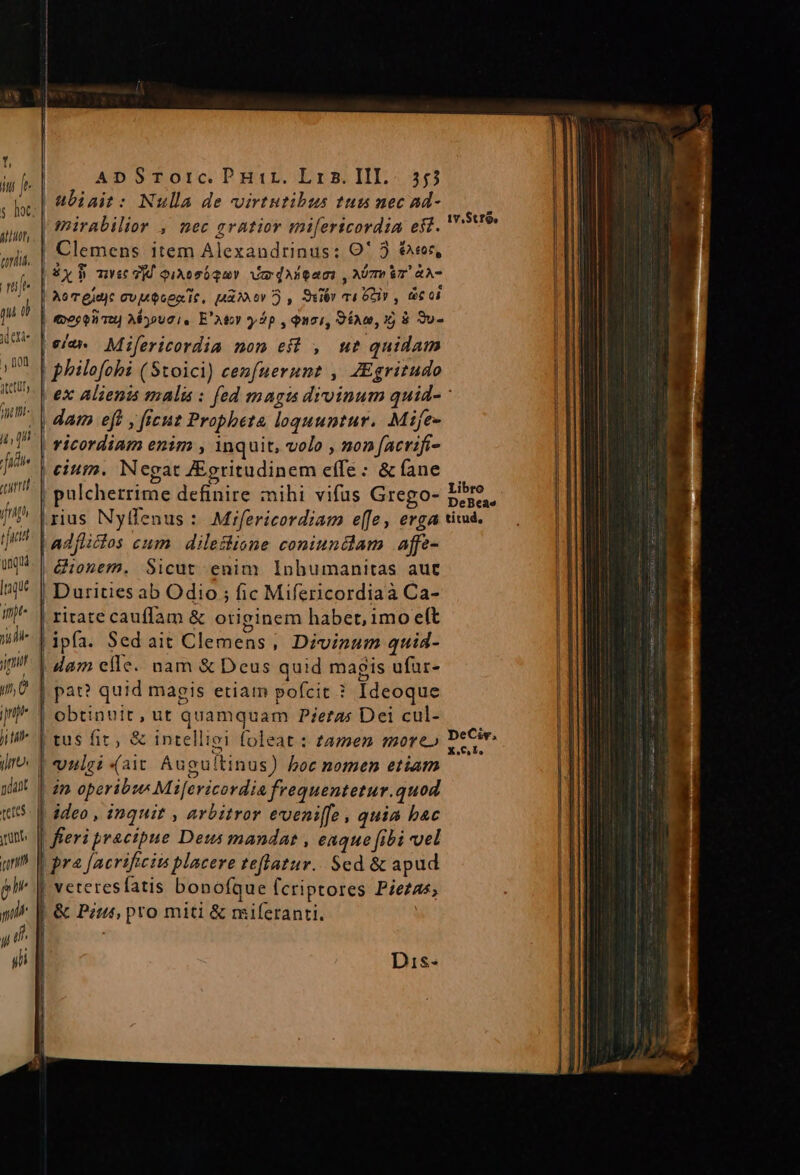 AD STOIC. PHIL. LIB. III. 353
ubi ait: Nulla de virtutibus tuis nec ad-
mirabilior, nec gratior misericordia est. IV. Strō.
Clemens item Alexandrinus: Ο' ϳ ἔλεος,
λέγουσι. Ἔλεον γὰρ, φησι, θέλω, ϗ ὀ θυ-
σίαν. Misericordia non est, ut quidam
philosophi (Stoici) censuerunt, Ægritudo
ex alienis malis: sed magis divinum quid-
dam est, sicut Prophetæ loquuntur. Mise-
ricordiam enim, inquit, volo, non sacrifi-
cium. Negat Ægritudinem esse: & sane
pulcherrime definire mihi visus Grego- Libro DeBea-
rius Nyssenus: Misericordiam esse, erga titud.
adflictos cum dilectione coniunctam affe-
ctionem. Sicut enim Inhumanitas aut
Durities ab Odio; sic Misericordia à Ca-
ritate caussam & originem habet, imo est
ipsa. Sed ait Clemens, Divinum quid-
dam esse. nam & Deus quid magis usur-
pat? quid magis etiam poscit? Ideoque
obtinuit, ut quamquam Pietas Dei cul-
tus sit, & intelligi soleat: tamen more DeCiv. X.C.I.
vulgi (ait Augustinus) hoc nomen etiam
in operibus Misericordia frequentetur. quod
ideo, inquit, arbitror evenisse, quia hæc
fieri præcipue Deus mandat, eaque sibi vel
præ sacrificiis placere testatur. Sed & apud
veteres satis bonosque scriptores Pietas,
& Pius, pro miti & miseranti.
Dis-